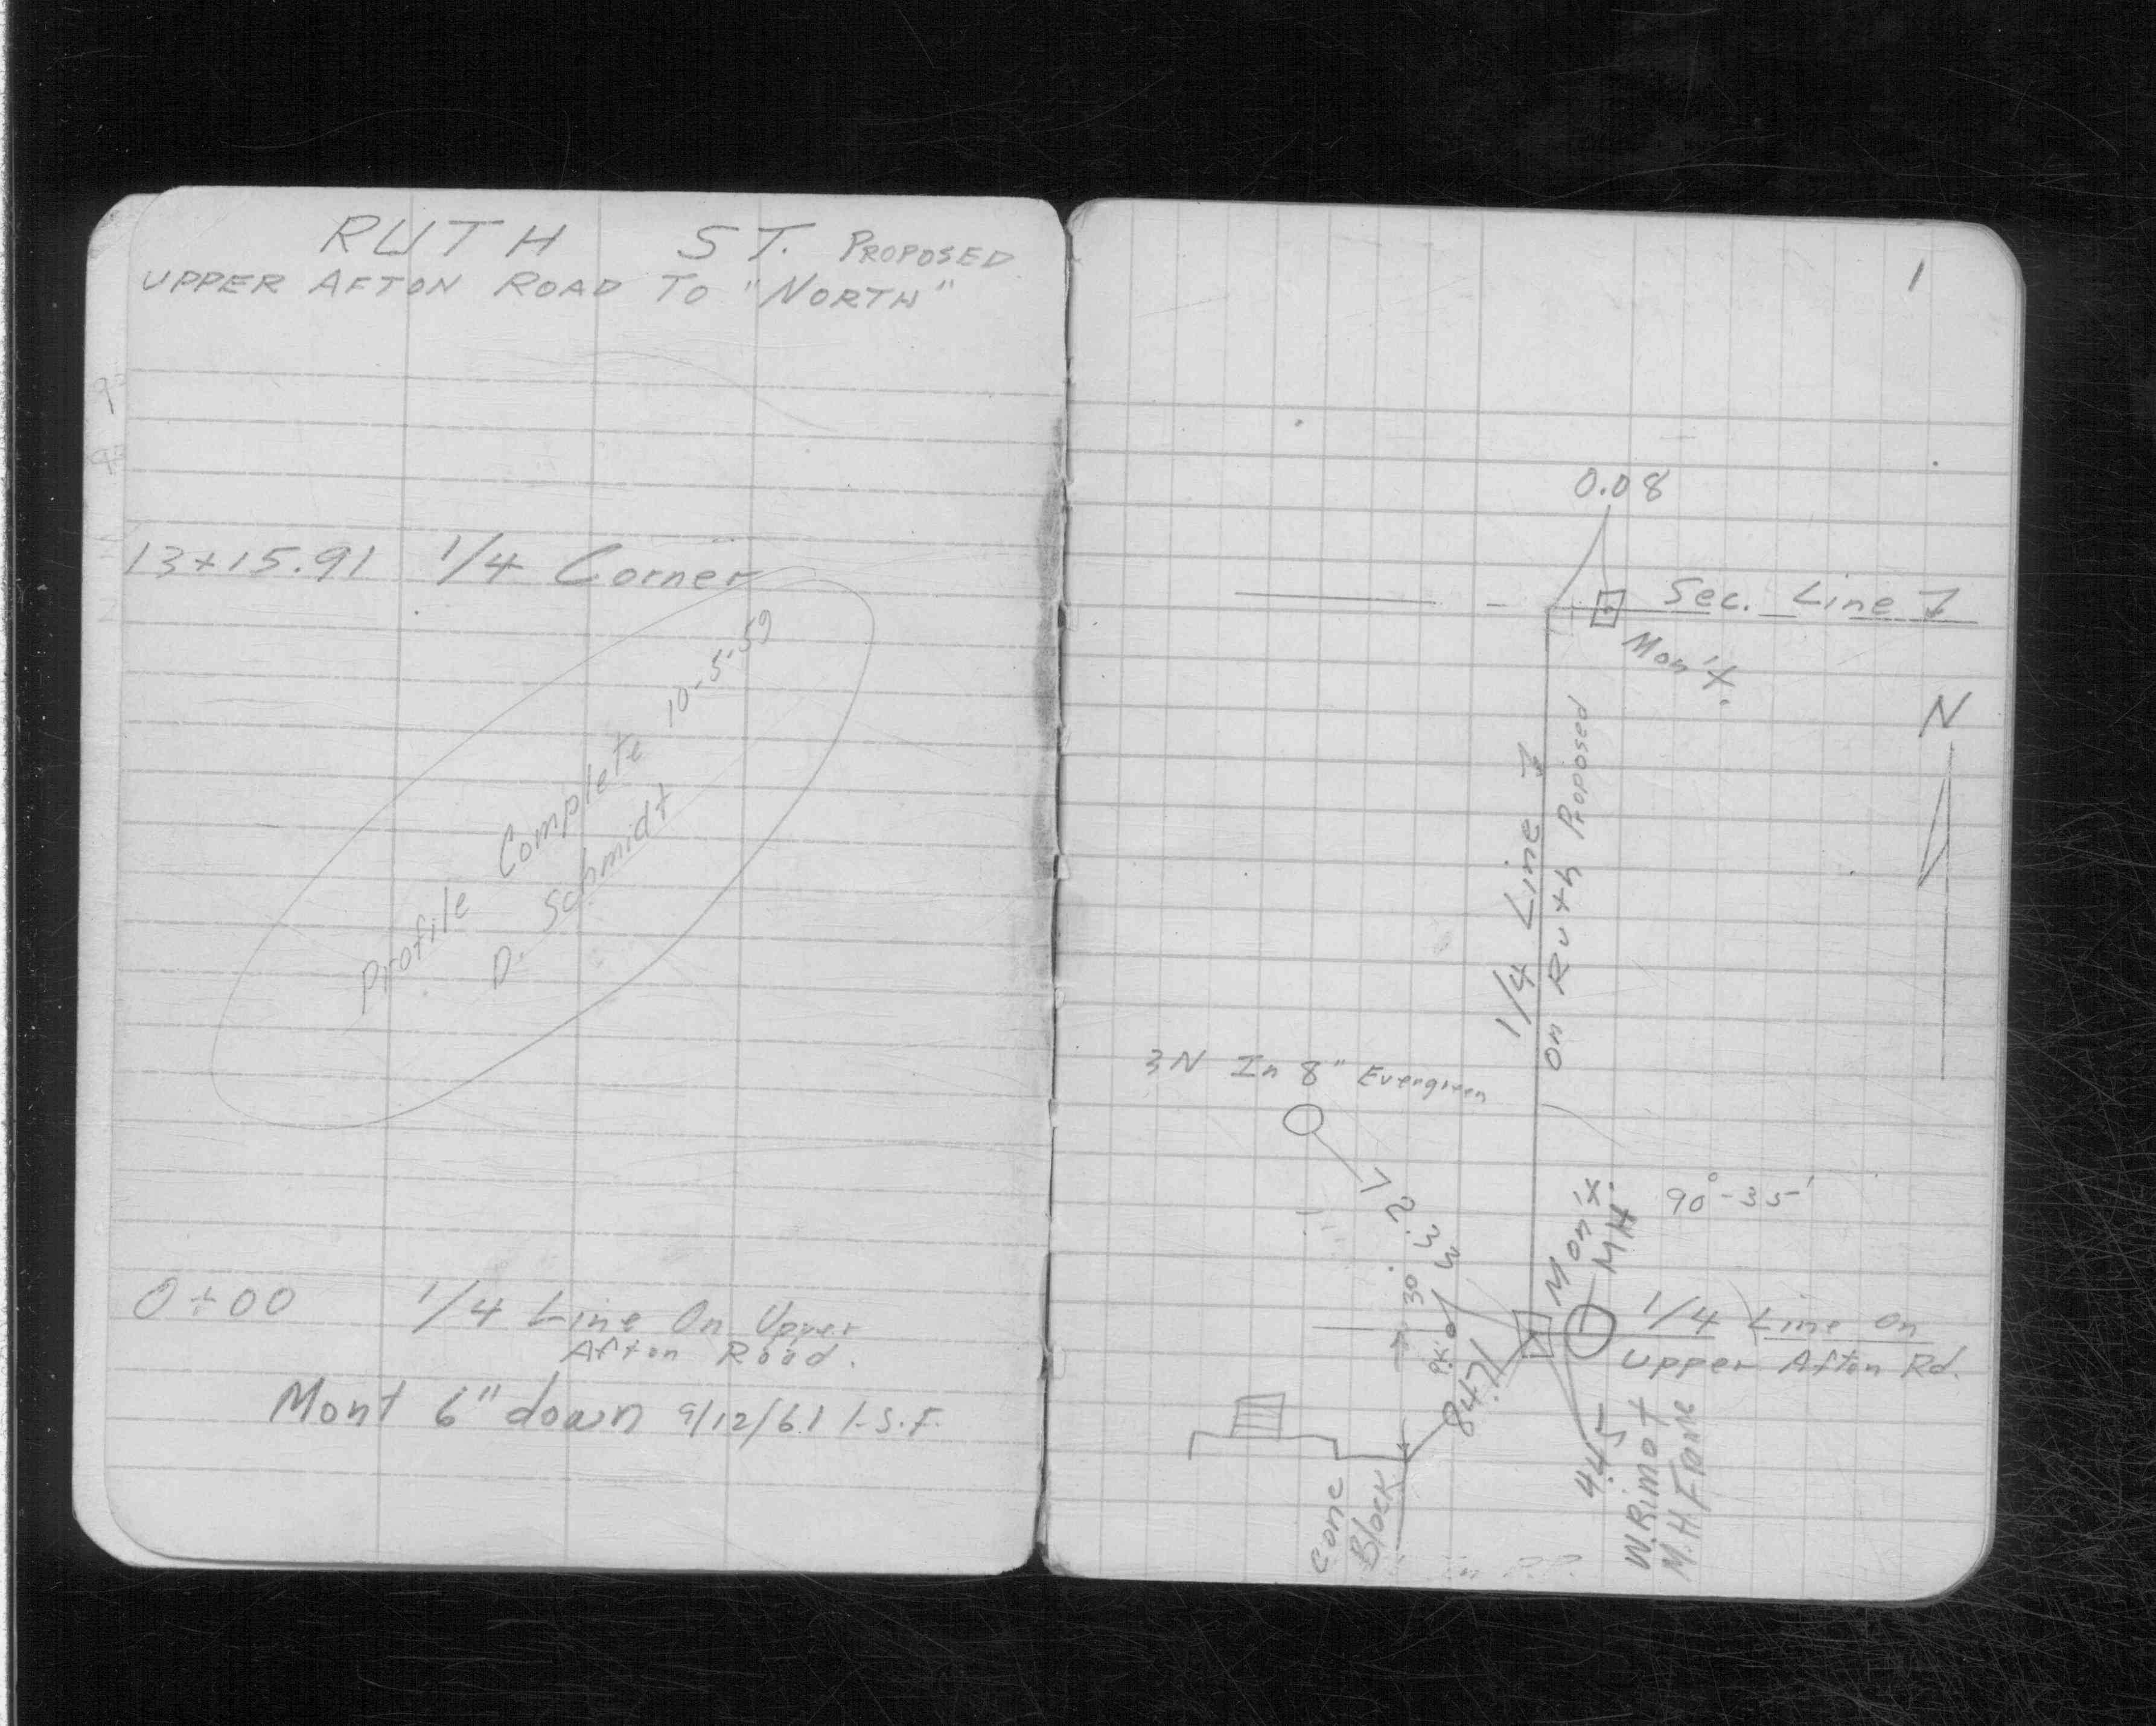 RUTH ST. PROPOSED
UPPER AFTON ROAD TO "NORTH"
13+15.91 1/4 Corner
Profile Complete 10-5-59
D. Schmidt
0+00 1/4 Line On Upper
Afton Road.
Mont 6" down 9/12/61 L.S.F.
1
0.08
Sec. Line
Mon't.
N
1/4 Line
On Ruth Proposed
3N In 8" Evergreen
90°-35'
Mon't.
MH
30'
P.K.
1/4 Line On
Upper Afton Rd.
84.71
4.45
W.Rim of
M.H Frame
Conc
Block
In P.P.